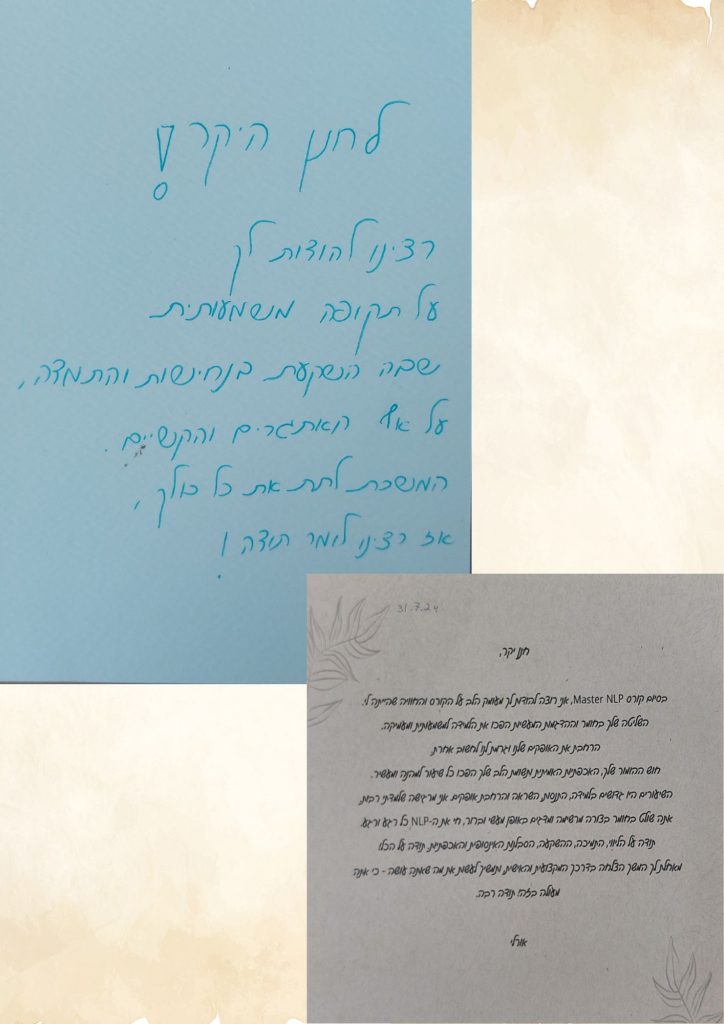 לחנן היקר!
רצינו להודות לך
על תקופה משמעותית
שבה השקעת בנחישות והתמדה,
על אף האתגרים והקשיים.
המשכת לתת את כל כולך,
אז רצינו לומר תודה!
31.7.24
חנן יקר,
בסיום קורס Master NLP, אני רוצה להודות לך מעומק הלב על הקורס והחוויה שהייתה לי.
השליטה שלך בחומר וההדגמות המעשיות הפכו את הלמידה למשמעותית ומעמיקה.
הרחבת את האופקים שלנו וגרמת לנו לחשוב אחרת.
חוש ההומור שלך, האכפתיות האמיתית ותשומת הלב שלך הפכו כל שיעור למהנה ומעשיר.
השיעורים היו גדושים בלמידה, התנסות, השראה והרחבת אופקים. אני מרגישה שלמדתי רבות.
אתה שולט בחומר בצורה מרשימה ומדגים באופן מעשי וברור, חי את ה-NLP כל רגע ורגע.
תודה על הליווי, התמיכה, ההשקעה, הסבלנות האינסופית והאכפתיות, תודה על הכל!
מאחלת לך המשך הצלחה בדרכך המקצועית והאישית, ותמשיך לעשות את מה שאתה עושה - כי אתה
מעולה בזה! תודה רבה.
אורלי